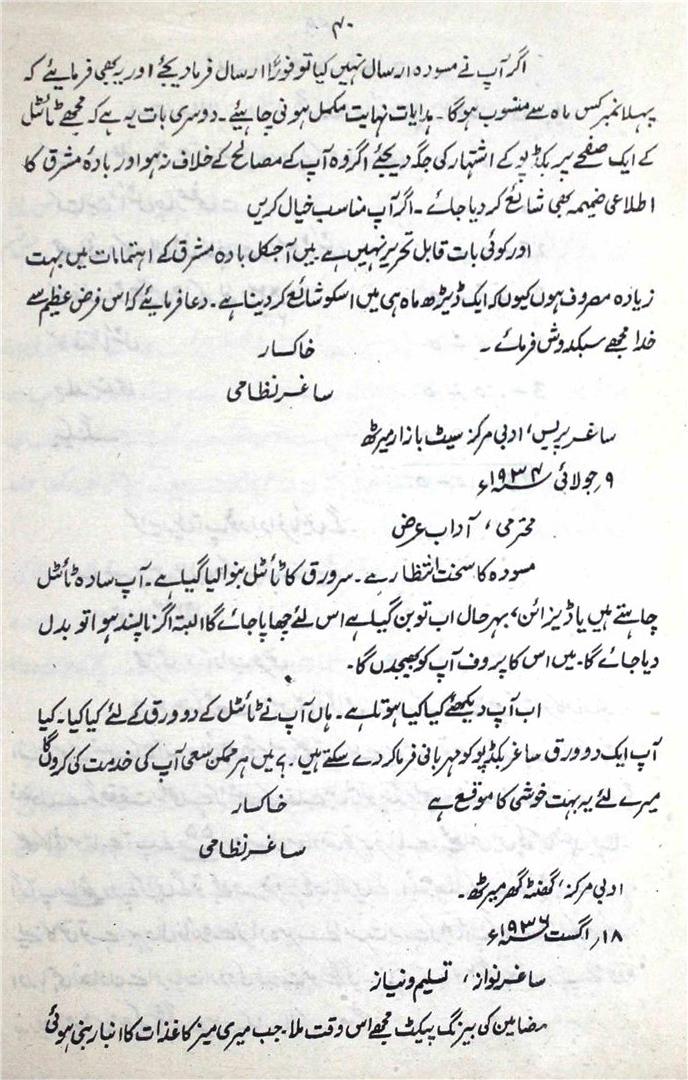 ۴۰
اگر آپ نے مسودہ ارسال نہیں کیا تو فوراً ارسال فرما دیجئے اور یہ بھی فرمایئے کہ
پہلا نمبر کس ماہ سے منسوب ہوگا۔ ہدایات نہایت مکمل ہونی چاہیئے۔ دوسری بات یہ ہے کہ مجھے ٹائٹل
کے ایک صفحے پر بکڈپو کے اشتہار کی جگہ دیجئے اگر وہ آپ کے مصالح کے خلاف نہ ہو اور بادۂ مشرق کا
اطلاعی ضمیمہ بھی شائع کر دیا جائے۔ اگر آپ مناسب خیال کریں
اور کوئی بات قابل تحریر نہیں ہے۔ میں آجکل بادہ مشرق کے اہتمامات میں بہت
زیادہ مصروف ہوں کیوں کہ ایک ڈیڑھ ماہ ہی میں اسکو شائع کر دینا ہے۔ دعا فرمایئے کہ اس فرض عظیم سے
خدا مجھے سبکدوش فرمائے۔
خاکسار
ساغر نظامی
ساغر پریس، ادبی مرکز سیٹ بازار میرٹھ
۹؍ جولائی ۱۹۳۴ء
محترمی، آداب عرض
مسودہ کا سخت انتظار ہے۔ سرورق کا ٹائٹل بنوالیا گیا ہے۔ آپ سادہ ٹائٹل
چاہتے ہیں یا ڈیزائن، بہرحال اب تو بن گیا ہے اس لئے چھاپا جائے گا البتہ اگر ناپسند ہوا تو بدل
دیا جائے گا۔ میں اس کا پروف آپ کو بھیجدں گا۔
اب آپ دیکھئے کیا کیا ہوتا ہے۔ ہاں آپ نے ٹائٹل کے دو ورق کے لئے کیا کیا۔ کیا
آپ ایک دو ورق ساغر بکڈپو کو مہربانی فرما کر دے سکتے ہیں۔؟ میں ہر ممکن سعی آپ کی خدمت کی کروں گا
میرے لئے یہ بہت خوشی کا موقع ہے
خاکسار
ساغر نظامی
ادبی مرکز، گھنٹہ گھر میرٹھ۔
۱۸؍ اگست ۱۹۳۶ء
ساغر نواز، تسلیم و نیاز
مضامین کی بیرنگ پیکٹ مجھے اس وقت ملا۔ جب میری میز کاغذات کا انبار بنی ہوئی